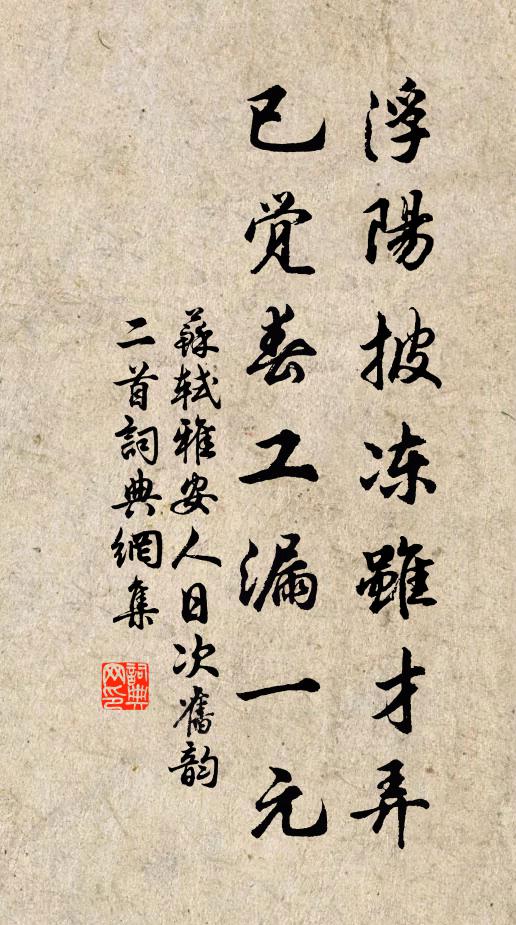 浮陽披冻雖才弄
已觉春工漏一元
蘇軾雅安人日次舊韵
二首詞典網集
詞典网印